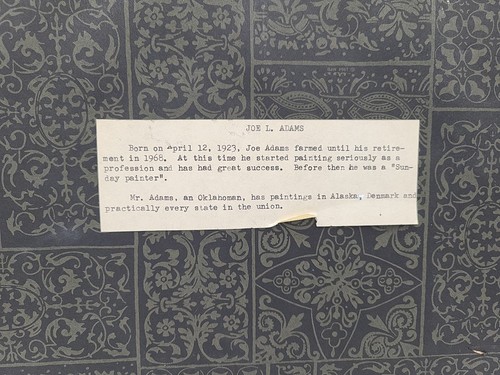 JOE L. ADAMS
Born on April 12, 1923, Joe Adams farmed until his retire-
ment in 1968. At this time he started painting seriously as a
profession and has had great success. Before then he was a "Sun-
day painter".
Mr. Adams, an Oklahoman, has paintings in Alaska, Denmark and
practically every state in the union.